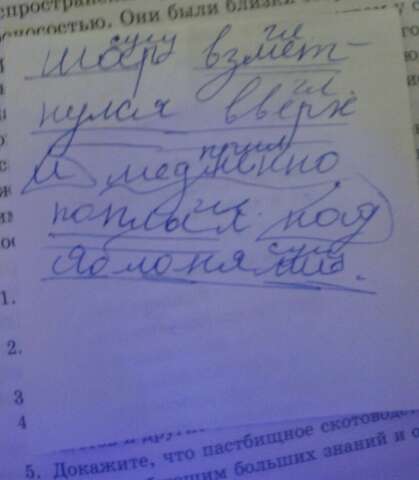 распростран
Они были близки
сущ гл.
Шар взмет-
гл.
нулся вверх
прил
и медленно
гл.
поплыл под
сущ
яблонями.
1.
2.
3
4
5. Докажите, что пастбищное скотоводст
больших знаний и о